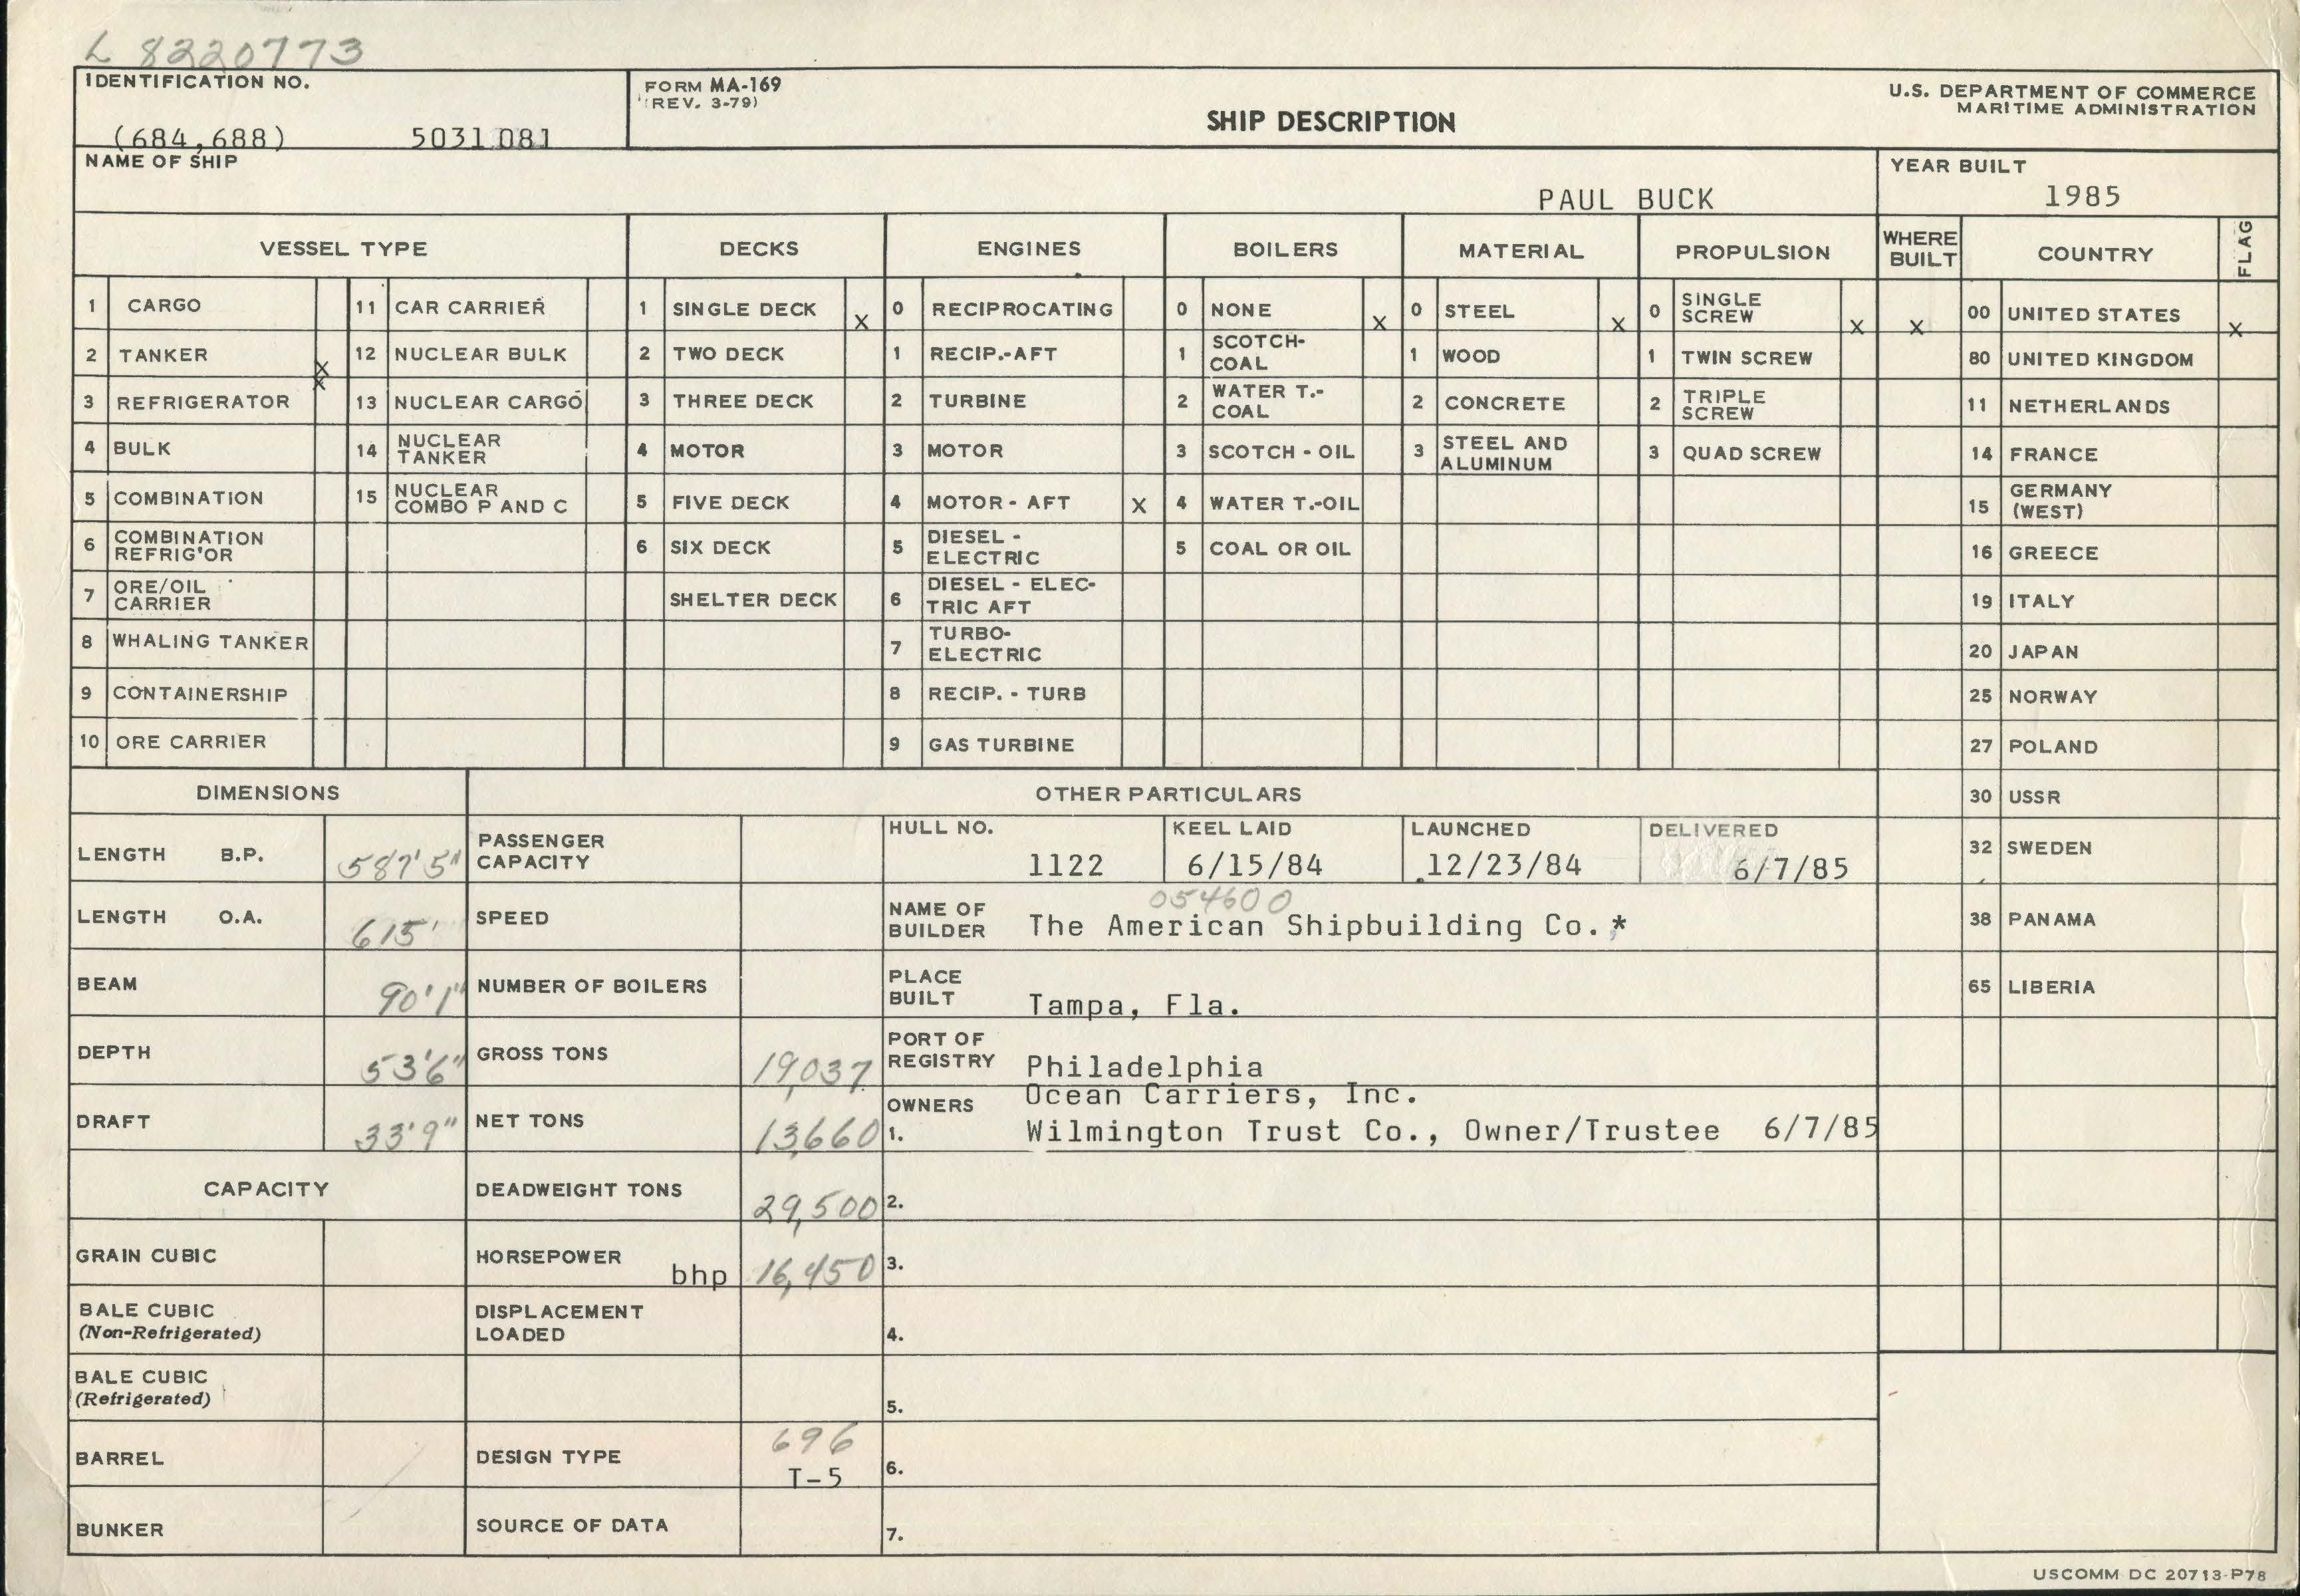 L 8220773
IDENTIFICATION NO.
(684,688) 5031 081
FORM MA-169
(REV. 3-79)
SHIP DESCRIPTION
U.S. DEPARTMENT OF COMMERCE
MARITIME ADMINISTRATION
NAME OF SHIP
PAUL BUCK
YEAR BUILT
1985
VESSEL TYPE DECKS ENGINES BOILERS MATERIAL PROPULSION WHERE BUILT COUNTRY FLAG
1 CARGO 11 CAR CARRIER 1 SINGLE DECK X 0 RECIPROCATING 0 NONE X 0 STEEL X 0 SINGLE SCREW X X 00 UNITED STATES X
2 TANKER X 12 NUCLEAR BULK 2 TWO DECK 1 RECIP.-AFT 1 SCOTCH-COAL 1 WOOD 1 TWIN SCREW 80 UNITED KINGDOM
3 REFRIGERATOR X 13 NUCLEAR CARGO 3 THREE DECK 2 TURBINE 2 WATER T.-COAL 2 CONCRETE 2 TRIPLE SCREW 11 NETHERLANDS
4 BULK 14 NUCLEAR TANKER 4 MOTOR 3 MOTOR 3 SCOTCH - OIL 3 STEEL AND ALUMINUM 3 QUAD SCREW 14 FRANCE
5 COMBINATION 15 NUCLEAR COMBO P AND C 5 FIVE DECK 4 MOTOR - AFT X 4 WATER T.-OIL 15 GERMANY (WEST)
6 COMBINATION REFRIG'OR 6 SIX DECK 5 DIESEL - ELECTRIC 5 COAL OR OIL 16 GREECE
7 ORE/OIL CARRIER SHELTER DECK 6 DIESEL - ELEC-TRIC AFT 19 ITALY
8 WHALING TANKER 7 TURBO-ELECTRIC 20 JAPAN
9 CONTAINERSHIP 8 RECIP. - TURB 25 NORWAY
10 ORE CARRIER 9 GAS TURBINE 27 POLAND
DIMENSIONS OTHER PARTICULARS 30 USSR
LENGTH B.P. 587'5" PASSENGER CAPACITY
HULL NO. 1122
KEEL LAID 6/15/84
LAUNCHED 12/23/84
DELIVERED 6/7/85
32 SWEDEN
LENGTH O.A. 615' SPEED
054600
NAME OF BUILDER The American Shipbuilding Co.*
38 PANAMA
BEAM 90'1" NUMBER OF BOILERS
PLACE BUILT Tampa, Fla.
65 LIBERIA
DEPTH 53'6" GROSS TONS 19,037
PORT OF REGISTRY Philadelphia
DRAFT 33'9" NET TONS 13,660
OWNERS Ocean Carriers, Inc.
1. Wilmington Trust Co., Owner/Trustee 6/7/85
CAPACITY DEADWEIGHT TONS 29,500 2.
GRAIN CUBIC HORSEPOWER bhp 16,450 3.
BALE CUBIC (Non-Refrigerated) DISPLACEMENT LOADED 4.
BALE CUBIC (Refrigerated) 5.
BARREL DESIGN TYPE 696 T-5 6.
BUNKER SOURCE OF DATA 7.
USCOMM DC 20713-P78